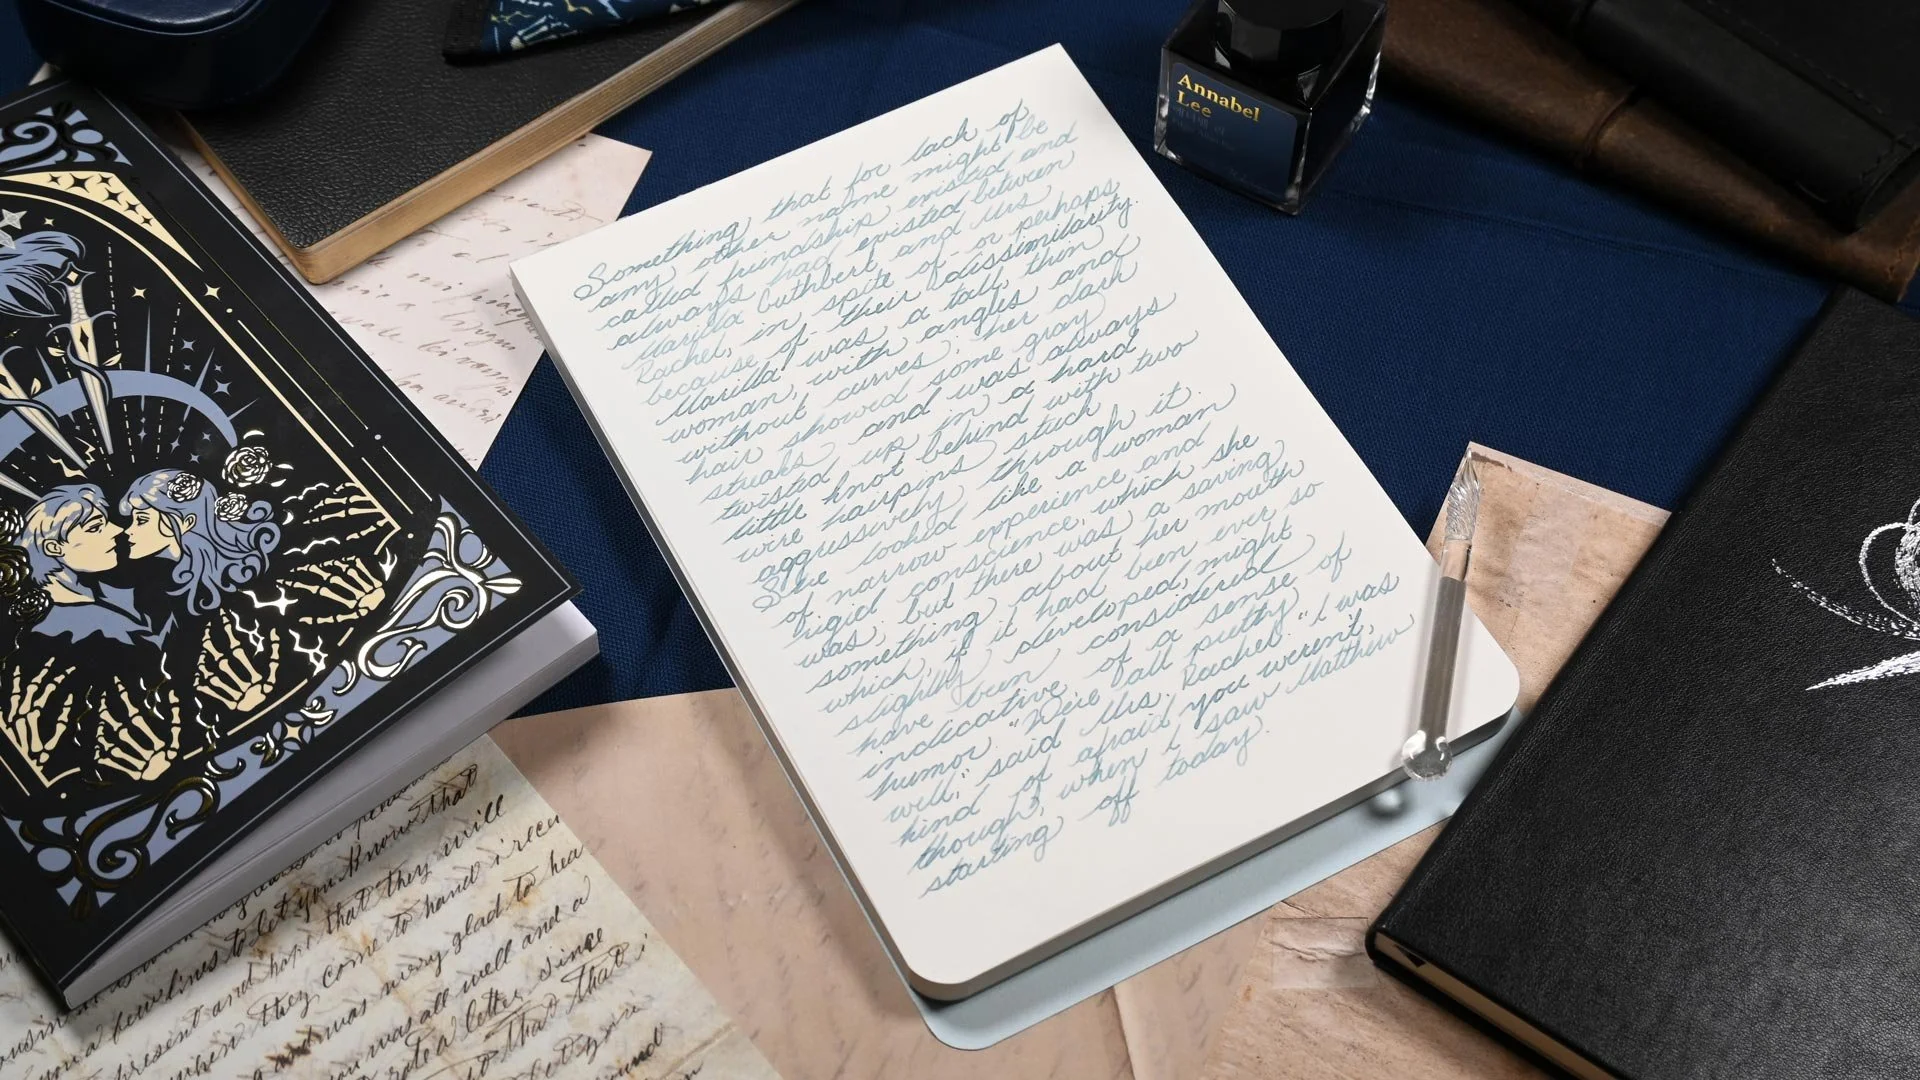 Annabel
Lee
애너벨 리
Something that for lack of
any other name might be
called friendship existed and
always had existed between
Marilla Cuthbert and Mrs
Rachel, in spite of - or perhaps
because of - their dissimilarity.
Marilla was a tall, thin
woman, with angles and
without curves; her dark
hair showed some gray
streaks and was always
twisted up in a hard
little knot behind with two
wire hairpins stuck
aggressively through it.
She looked like a woman
of narrow experience and
rigid conscience, which she
was; but there was a saving
something about her mouth
which, if it had been ever so
slightly developed, might
have been considered
indicative of a sense of
humor. "We're all pretty
well," said Mrs. Rachel. "I was
kind of afraid you weren't,
though, when I saw Matthew
starting off today.
you Know that
a few lines to let you Know that
present and hope that they will
when they come to hand i rece
and was very glad to hea
you was all well and a
a letter since
that that i